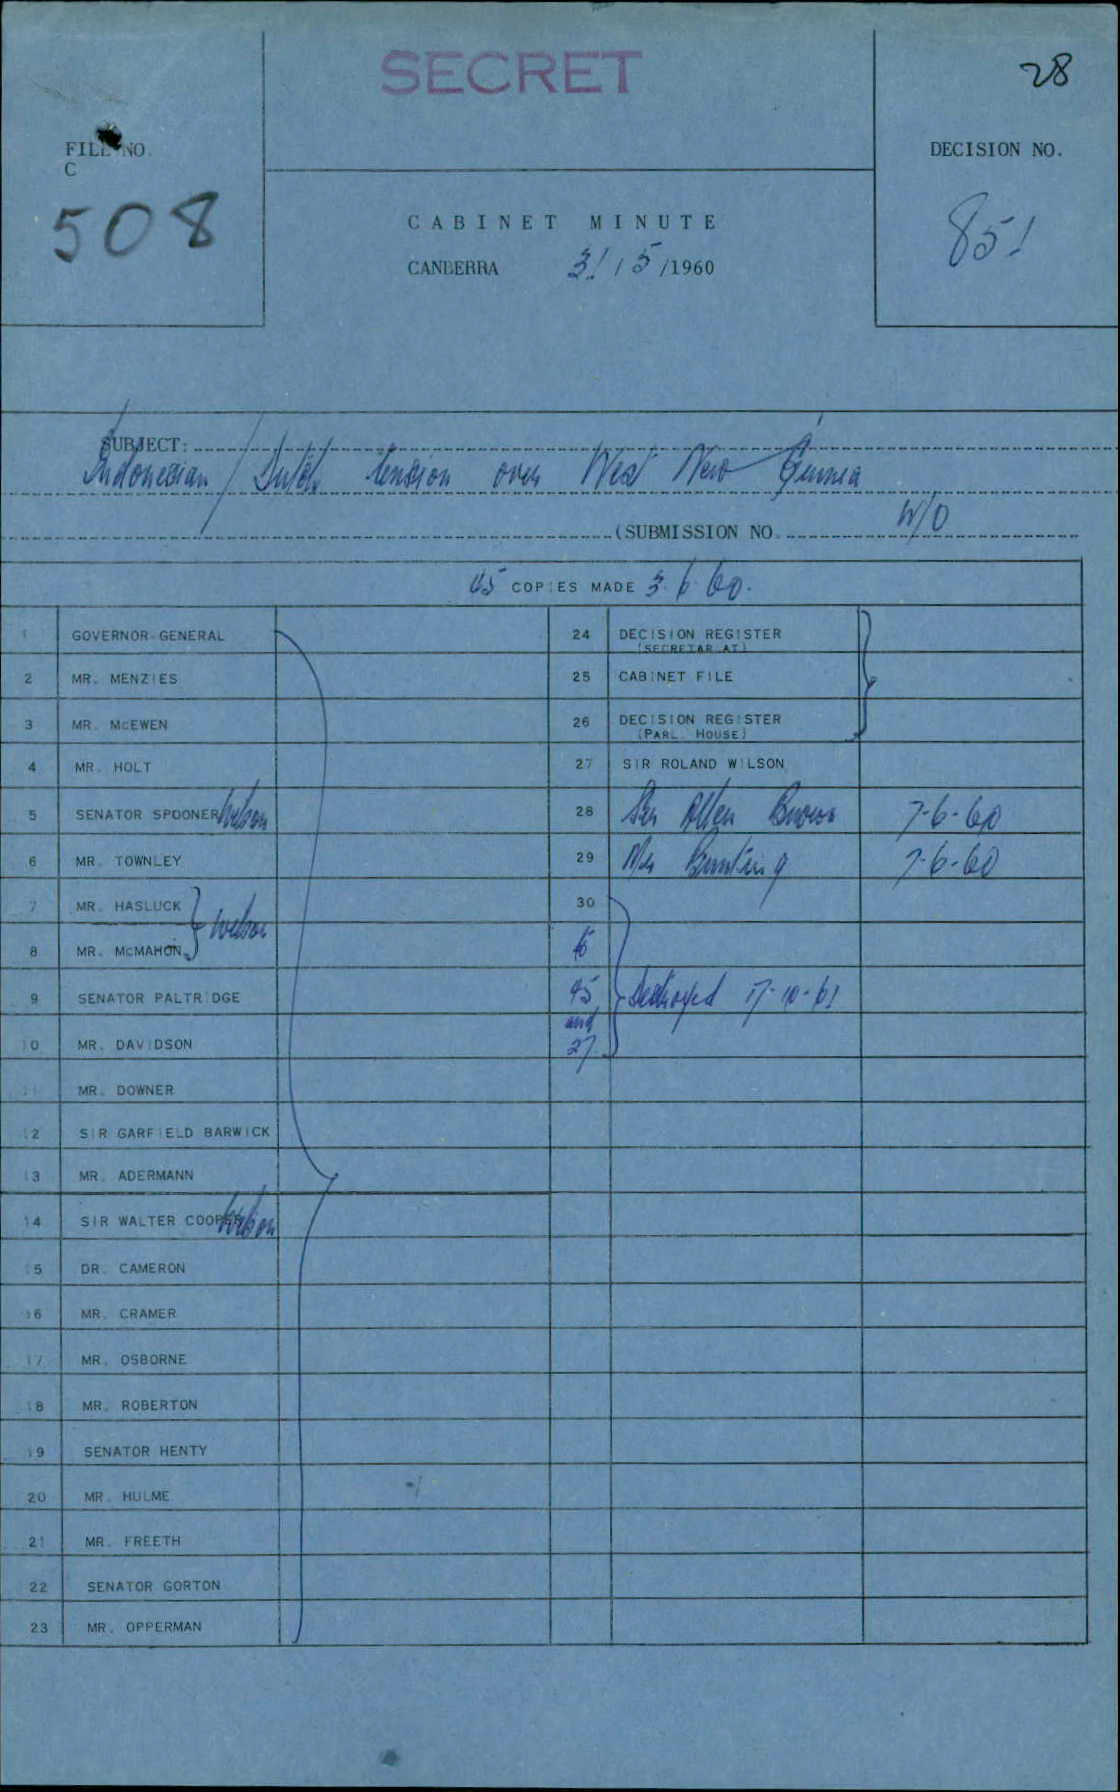 SECRET
28
FILE NO.
C
508
DECISION NO.
851
CABINET MINUTE
CANBERRA 31/5/1960
SUBJECT:
Indonesian/Dutch tension over West New Guinea
(SUBMISSION NO. W/O
45 COPIES MADE 3.6.60.
1 GOVERNOR-GENERAL
2 MR. MENZIES
3 MR. McEWEN
4 MR. HOLT
5 SENATOR SPOONER Wilson
6 MR. TOWNLEY
7 MR. HASLUCK
8 MR. McMAHON } Wilson
9 SENATOR PALTRIDGE
10 MR. DAVIDSON
11 MR. DOWNER
12 SIR GARFIELD BARWICK
13 MR. ADERMANN
14 SIR WALTER COOPER Wilson
15 DR. CAMERON
16 MR. CRAMER
17 MR. OSBORNE
18 MR. ROBERTON
19 SENATOR HENTY
20 MR. HULME
21 MR. FREETH
22 SENATOR GORTON
23 MR. OPPERMAN
24 DECISION REGISTER
(SECRETARIAT)
25 CABINET FILE
26 DECISION REGISTER
(PARL. HOUSE)
27 SIR ROLAND WILSON
28 Sir Allen Brown 7-6-60
29 Mr Bunting 7-6-60
30
to
45 Destroyed 17-10-61
and
27